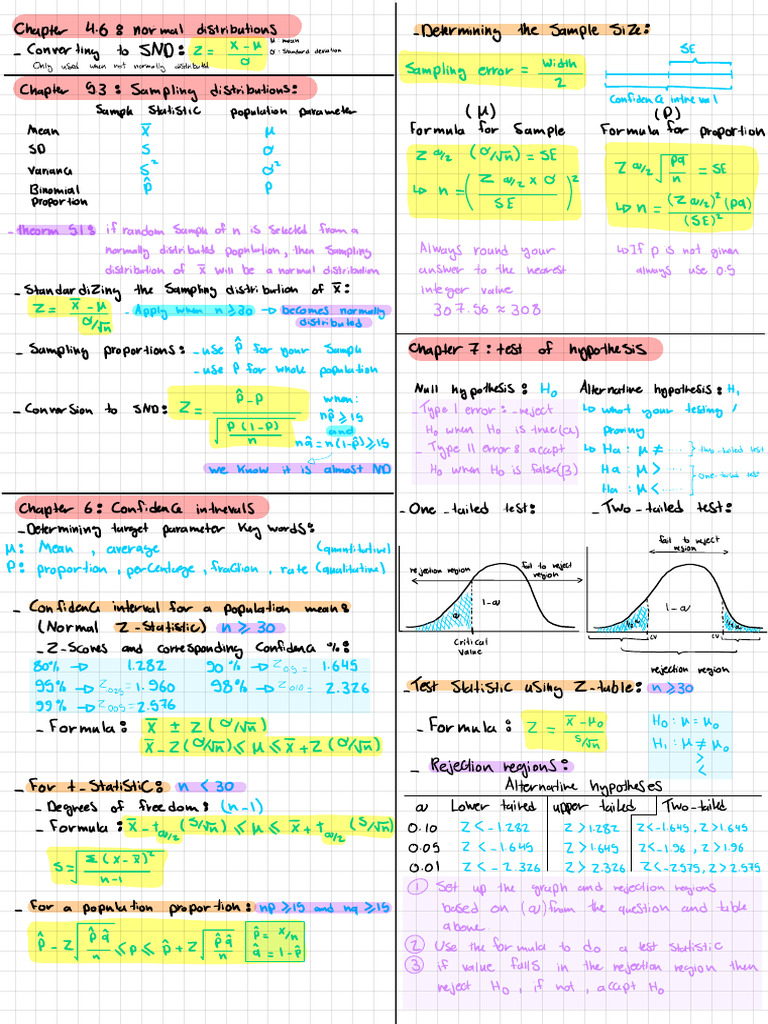 Chapter 4.6 : normal distributions
- Converting to SND: Z = (x - μ)/σ
μ - mean
σ - standard deviation
Only used when not normally distributed
Chapter 5.3 : Sampling distributions:
Sample Statistic population parameter
Mean x̄ μ
SD S σ
Variance S² σ²
Binomial Proportion p̂ p
- theorm 5.1 : if random sample of n is selected from a
normally distributed population, then sampling
distribution of x̄ will be a normal distribution
- Standardizing the sampling distribution of x̄ :
Z = (x̄ - μ)/(σ/√n) - Apply when n ≥ 30 → becomes normally
distributed
- Sampling proportions: - use p̂ for your sample
- use P for whole population
- Conversion to SND: Z = (p̂ - p)/√(p(1-p)/n)
when:
np̂ ≥ 15
and
nq̂ = n(1-p̂) ≥ 15
we know it is almost ND
Chapter 6: Confidence intrevals
- Determining target parameter key words:
μ: Mean, average (quantitative)
P: proportion, percentage, fraction, rate (qualitative)
- Confidence interval for a population mean:
(Normal Z-Statistic) n ≥ 30
- Z-Scores and corresponding Confidence %:
80% → 1.282 90% → Z.05 = 1.645
95% → Z.025 = 1.960 98% → Z.010 = 2.326
99% → Z.005 = 2.576
- Formula: x̄ ± Z(σ/√n)
x̄ - Z(σ/√n) ≤ μ ≤ x̄ + Z(σ/√n)
- For t-Statistic: n < 30
- Degrees of freedom: (n-1)
- Formula: x̄ - tα/2 (S/√n) ≤ μ ≤ x̄ + tα/2 (S/√n)
S = √(Σ(x - x̄)²/(n-1))
- For a population proportion: np ≥ 15 and nq ≥ 15
p̂ - Z√(p̂q̂/n) ≤ p ≤ p̂ + Z√(p̂q̂/n)
p̂ = x/n
q̂ = 1-p̂
- Determining the Sample Size:
Sampling error = width/2
SE
Confidence intreval
(μ) (P)
Formula for Sample Formula for proportion
Z α/2 (σ/√n) = SE
↳ n = (Z α/2 × σ / SE)²
Z α/2 √(pq/n) = SE
↳ n = (Z α/2)² (pq)/(SE)²
Always round your
answer to the nearest
integer value
307.56 ≈ 308
↳ If p is not given
always use 0.5
Chapter 7: test of hypothesis
Null hypothesis: H₀ Alternative hypothesis: H₁
- Type I error: - reject
H₀ when H₀ is true (α)
- Type II error: accept
H₀ when H₀ is false (β)
↳ what your testing /
proving
↳ Ha: μ ≠ ..... } Two-tailed test
Ha: μ > .....
Ha: μ < ..... } One-tailed test
- One-tailed test: - Two-tailed test:
rejection region fail to reject
region
α 1-α
Critical
Value
fail to reject
region
α/2 1-α α/2
CV CV
rejection region
- Test Statistic using Z-table: n ≥ 30
- Formula: Z = (x̄ - μ₀)/(S/√n)
H₀ : μ = μ₀
H₁ : μ ≠ μ₀
>
<
- Rejection regions:
Alternative hypotheses
α Lower tailed upper tailed Two-tailed
0.10 Z < -1.282 Z > 1.282 Z < -1.645, Z > 1.645
0.05 Z < -1.645 Z > 1.645 Z < -1.96, Z > 1.96
0.01 Z < -2.326 Z > 2.326 Z < -2.575, Z > 2.575
① Set up the graph and rejection regions
based on (α) from the question and table
above.
② Use the formula to do a test statistic
③ if value falls in the rejection region then
reject H₀, if not, accept H₀